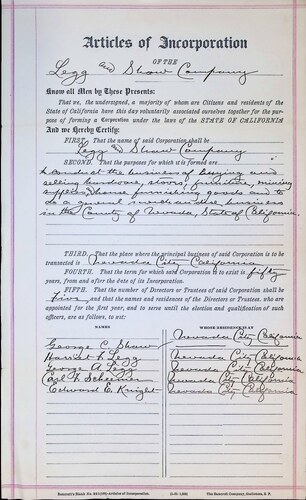 Articles of Incorporation
OF THE
Legg and Shaw Company
Know all Men by These Presents:
That we, the undersigned, a majority of whom are Citizens and residents of the
State of California have this day voluntarily associated ourselves together for the pur-
pose of forming a Corporation under the laws of the STATE OF CALIFORNIA
And we Hereby Certify:
FIRST. That the name of said Corporation shall be
Legg and Shaw Company
SECOND. That the purposes for which it is formed are
To conduct the business of buying and
selling hardware, stoves, furniture, mining
supplies, house furnishing goods and to
do a general merchandise business
in the County of Nevada, State of California.
THIRD. That the place where the principal business of said Corporation is to be
transacted is Nevada City California
FOURTH. That the term for which said Corporation is to exist is fifty
years, from and after the date of its Incorporation.
FIFTH. That the number of Directors or Trustees of said Corporation shall be
five, and that the names and residences of the Directors or Trustees, who are
appointed for the first year, and to serve until the election and qualification of such
officers, are as follows, to wit:
NAMES WHOSE RESIDENCE IS AT
George C. Shaw Nevada City California
Harriet F. Legg Nevada City California
George A. Legg Nevada City California
Carl F. Schreiner Nevada City California
Edward E. Knight Nevada City California
Articles of Incorporation.